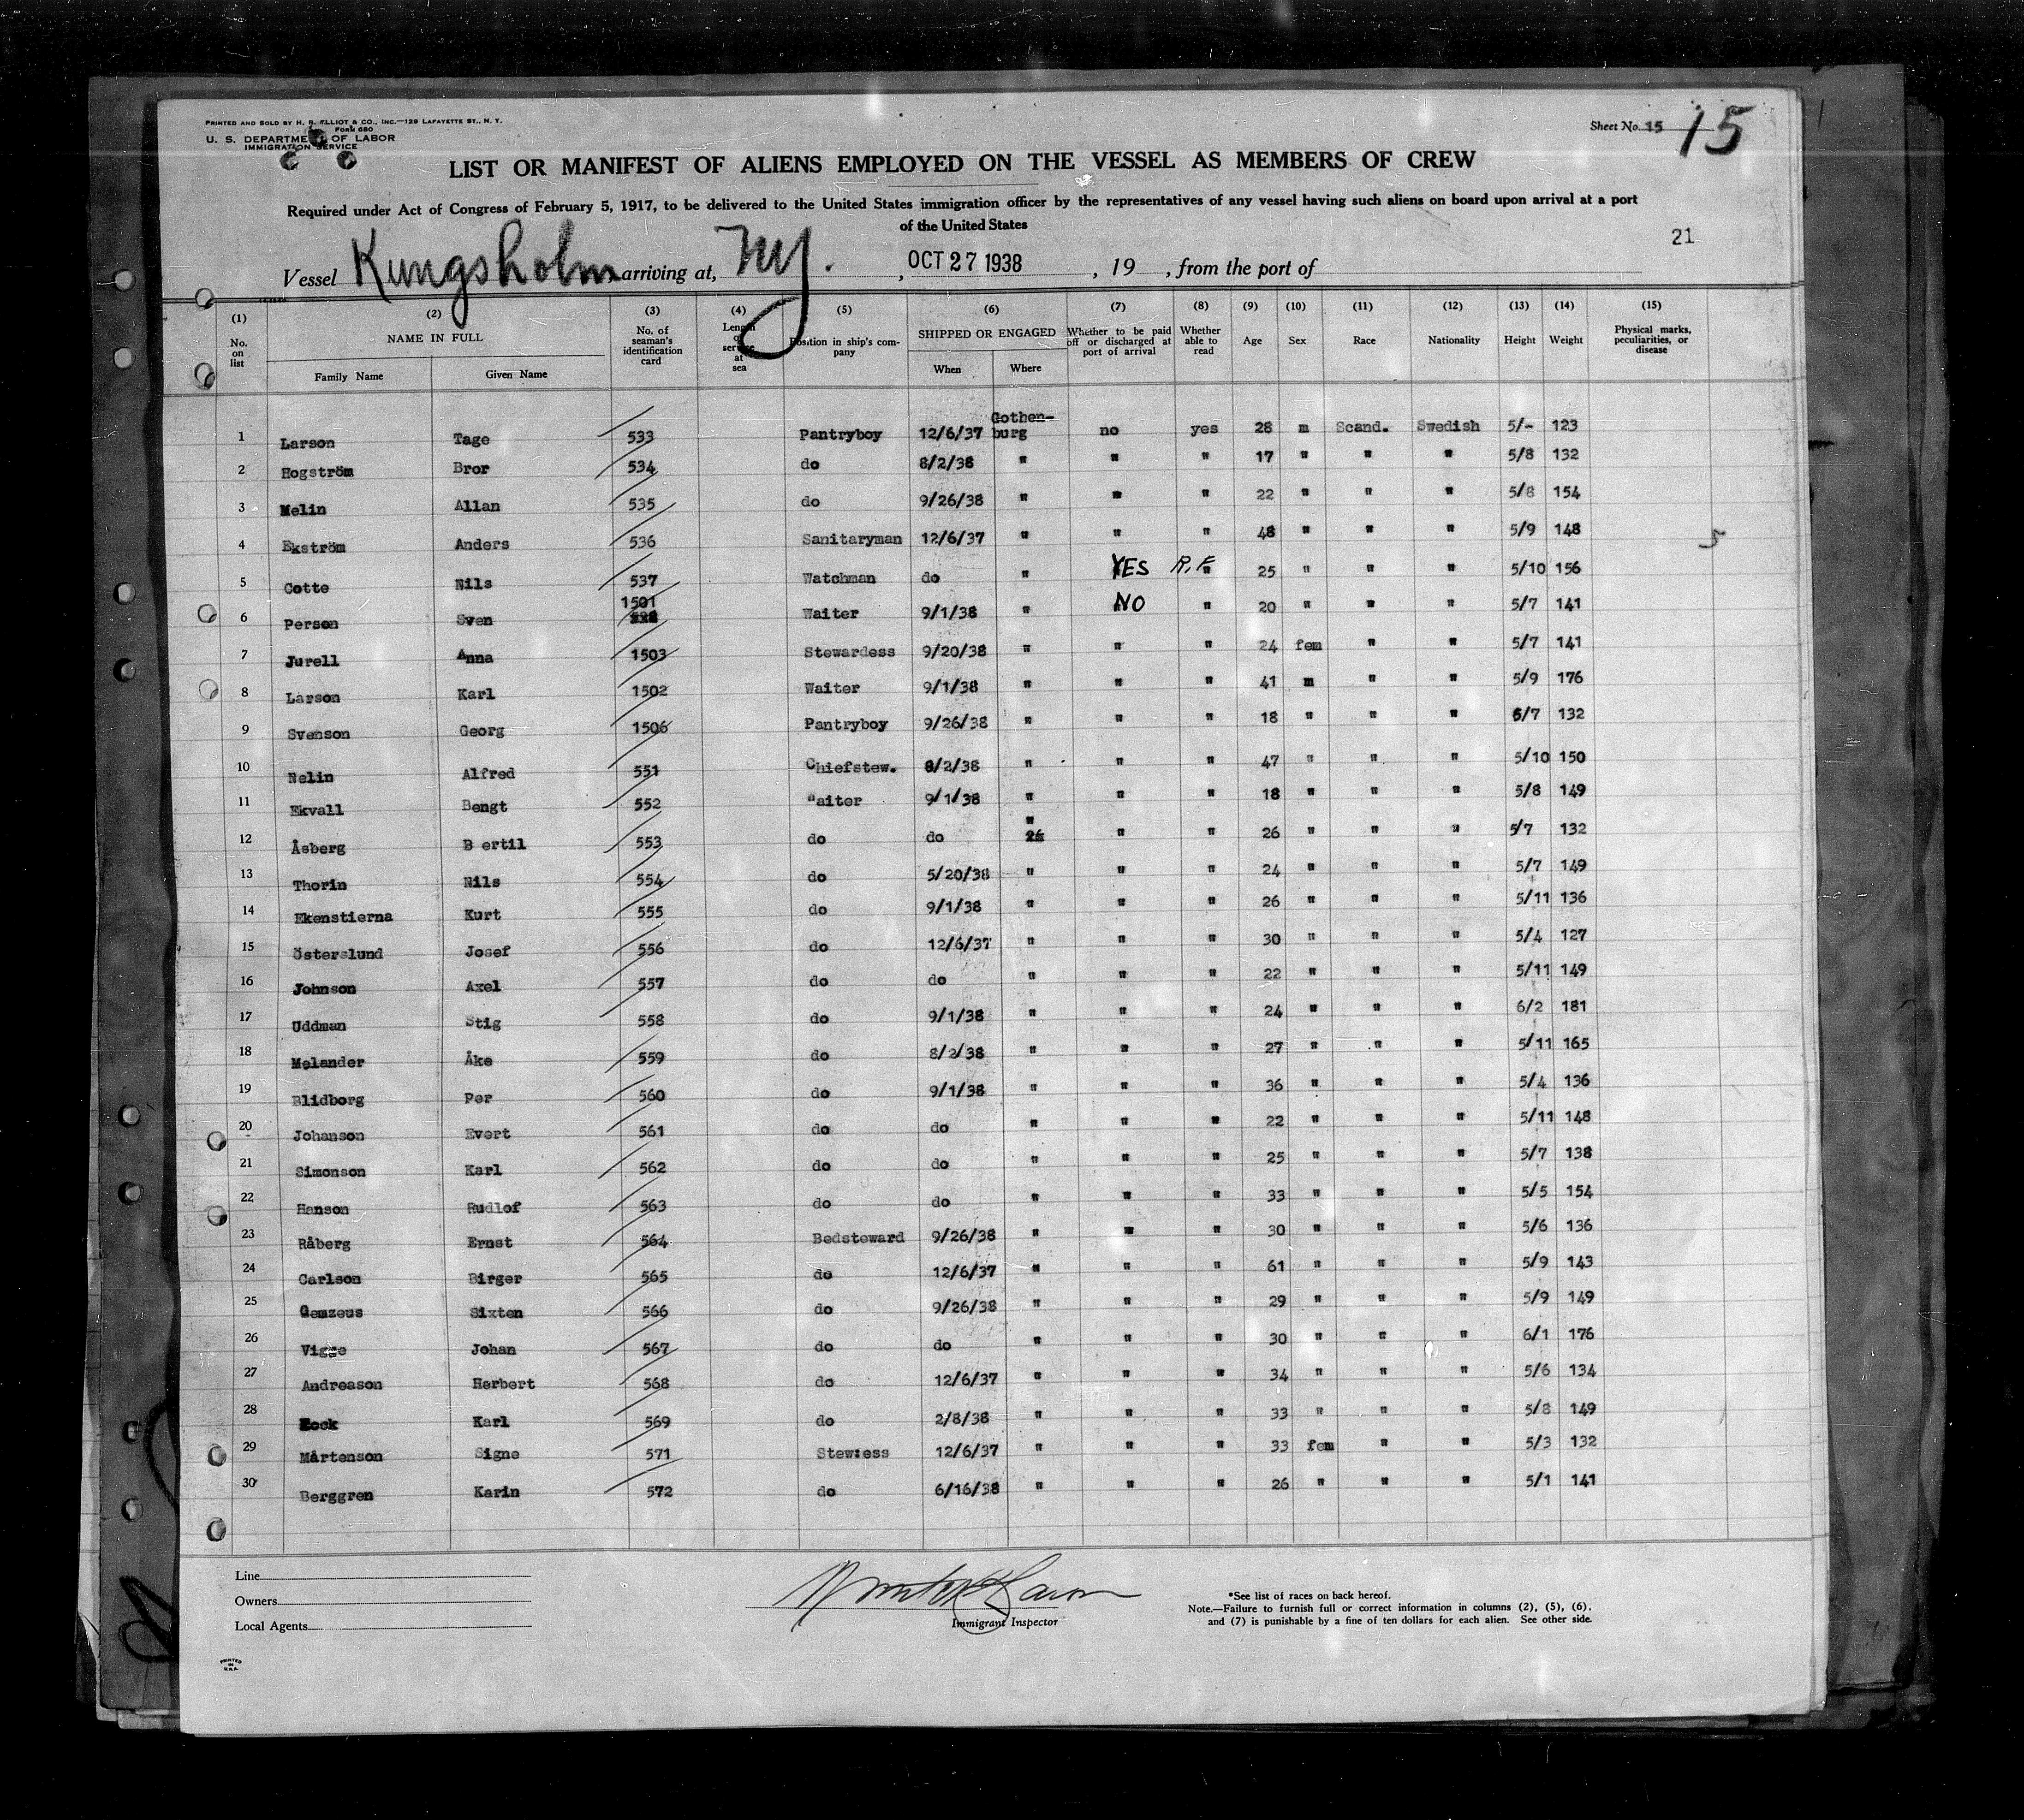 PRINTED AND SOLD BY H. B. ELLIOT & CO., INC.—129 LAFAYETTE ST., N. Y.
FORM 680
U. S. DEPARTMENT OF LABOR
IMMIGRATION SERVICE
Sheet No. 15 15
LIST OR MANIFEST OF ALIENS EMPLOYED ON THE VESSEL AS MEMBERS OF CREW
Required under Act of Congress of February 5, 1917, to be delivered to the United States immigration officer by the representatives of any vessel having such aliens on board upon arrival at a port
of the United States
21
Vessel Kungsholm arriving at, NY. , OCT 27 1938 , 19 , from the port of
(1) No. on list (2) NAME IN FULL Family Name Given Name (3) No. of seaman's identification card (4) Length of service at sea (5) Position in ship's company (6) SHIPPED OR ENGAGED When Where (7) Whether to be paid off or discharged at port of arrival (8) Whether able to read (9) Age (10) Sex (11) Race (12) Nationality (13) Height (14) Weight (15) Physical marks, peculiarities, or disease
1 Larson Tage 533 Pantryboy 12/6/37 Gothenburg no yes 28 m Scand. Swedish 5/- 123
2 Hogström Bror 534 do 8/2/38 " " " 17 " " " 5/8 132
3 Melin Allan 535 do 9/26/38 " " " 22 " " " 5/8 154
4 Ekström Anders 536 Sanitaryman 12/6/37 " " " 48 " " " 5/9 148 5
5 Cotte Nils 537 Watchman do " YES R.F. " 25 " " " 5/10 156
6 Person Sven 1501 Waiter 9/1/38 " NO " 20 " " " 5/7 141
7 Jurell Anna 1503 Stewardess 9/20/38 " " " 24 fem " " 5/7 141
8 Larson Karl 1502 Waiter 9/1/38 " " " 41 m " " 5/9 176
9 Svenson Georg 1506 Pantryboy 9/26/38 " " " 18 " " " 5/7 132
10 Nelin Alfred 551 Chiefstew. 8/2/38 " " " 47 " " " 5/10 150
11 Ekvall Bengt 552 "aiter 9/1/38 " " " 18 " " " 5/8 149
12 Åsberg B ertil 553 do do " " " 26 " " " 5/7 132
13 Thorin Nils 554 do 5/20/38 " " " 24 " " " 5/7 149
14 Ekenstierna Kurt 555 do 9/1/38 " " " 26 " " " 5/11 136
15 Österslund Josef 556 do 12/6/37 " " " 30 " " " 5/4 127
16 Johnson Axel 557 do do " " " 22 " " " 5/11 149
17 Uddman Stig 558 do 9/1/38 " " " 24 " " " 6/2 181
18 Melander Åke 559 do 8/2/38 " " " 27 " " " 5/11 165
19 Blidborg Per 560 do 9/1/38 " " " 36 " " " 5/4 136
20 Johanson Evert 561 do do " " " 22 " " " 5/11 148
21 Simonson Karl 562 do do " " " 25 " " " 5/7 138
22 Hanson Rudlof 563 do do " " " 33 " " " 5/5 154
23 Råberg Ernst 564 Bedsteward 9/26/38 " " " 30 " " " 5/6 136
24 Carlson Birger 565 do 12/6/37 " " " 61 " " " 5/9 143
25 Gemzeus Sixten 566 do 9/26/38 " " " 29 " " " 5/9 149
26 Vigge Johan 567 do do " " " 30 " " " 6/1 176
27 Andreason Herbert 568 do 12/6/37 " " " 34 " " " 5/6 134
28 Karl 569 do 2/8/38 " " " 33 " " " 5/8 149
29 Mårtenson Signe 571 Stew:ess 12/6/37 " " " 33 fem " " 5/3 132
30 Berggren Karin 572 do 6/16/38 " " " 26 " " " 5/1 141
Line
Owners
Local Agents
Immigrant Inspector
*See list of races on back hereof.
Note.—Failure to furnish full or correct information in columns (2), (5), (6).
and (7) is punishable by a fine of ten dollars for each alien. See other side.
PRINTED
IN
U.S.A.